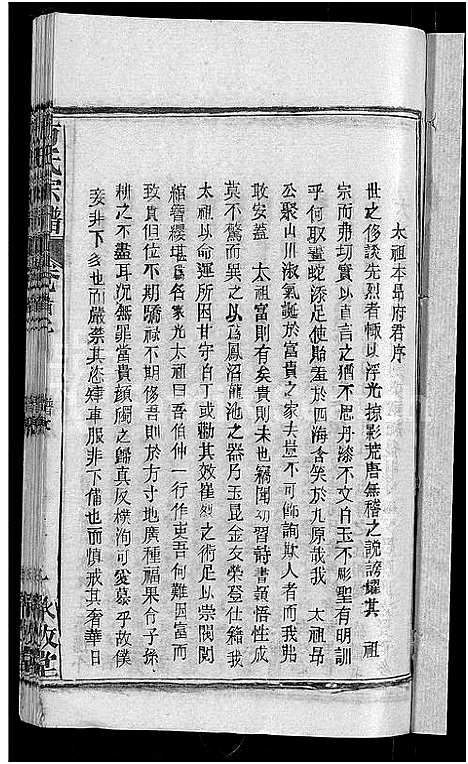 太祖本昂府君序
世之侈談先烈者輒以浮光掠影荒唐無稽之說謗燿其 祖
宗而弗切實以直言之猶不思丹漆不文白玉不彫聖有明訓
乎何取畫蛇添足使貽羞於四海含笑於九原哉我 太祖昂
公聚山川淑氣誕於富貴之家夫豈不可飾詢欺人者而我弗
敢安蓋 太祖富有矣貴則未也竊聞幼習詩書穎悟性成
莫不驚而異之以爲鳳沼龍池之器乃玉昆金友榮登仕籍我
太祖以命運所囿甘守白丁或勸其效崔烈之術足以崇閥閱
綰簪纓堪邑名家光太祖曰吾伯仲一行作吏吾何難因富而
致貴但位不期驕祿不期侈吾則於方寸地廣種福果令子孫
耕之不盡耳況無罪當貴顔濁之歸真反樸洵可愛慕乎故僕
妾非下多也而嚴禁其恣肆車服非下備也而慎戒其奢華日
氏宗譜
敦堂